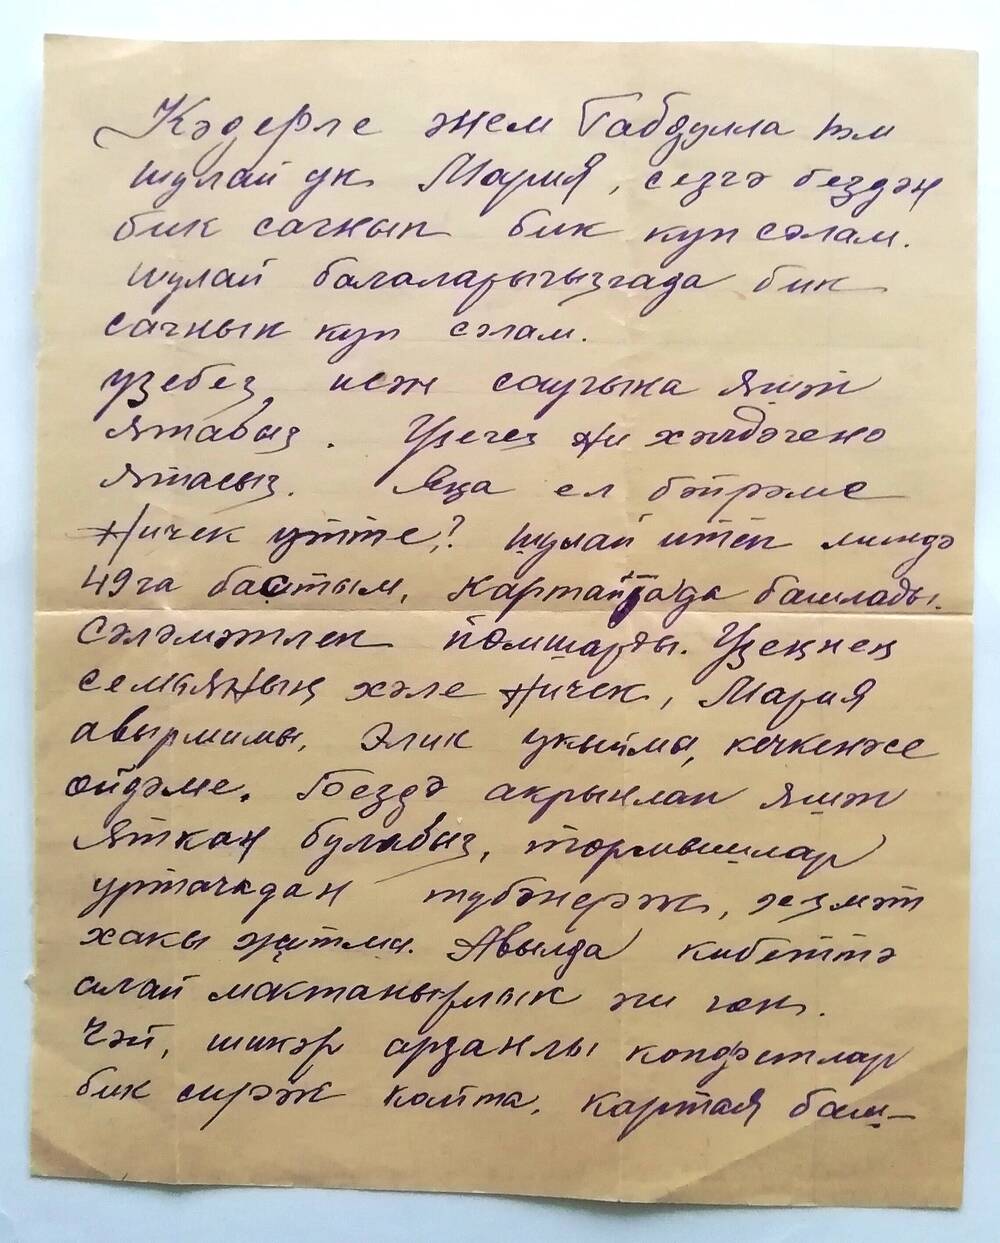 Кәдерле энем Габдулла һәм
шулай ук Мария, сезгә бездән
бик сагнып бик күп сәлам.
шулай балаларыгызгада бик
сагнып күп сәлам.
үзебез исән саугына яшәп
ятабыз. Үзегез ни хәлдәгенә
ятасыз. Яңа ел бәйрәме
Ничек үтте? шулай итеп миндә
49га бастым, картайтада башлады.
Сәләмәтлек йомшарды. Үзеңнең
семьяның хәле ничек, Мария
авырмимы, Элик укыйма, кечкенәсе
өйдәме. Бездә акрынлап яшәп
яткан булабыз, тормышлар
уртачадан түбәнерәк, хезмәт
хакы җитми. Авылда кибеттә
алай мактанырлык әй юк.
чәй, шикәр арзанлы конфетлар
бик сирәк кайта, картая баш-